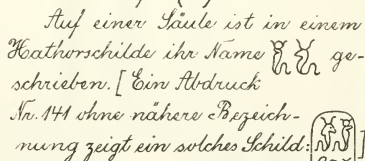 Auf einer Säule ist in einem
Hathorschilde ihr Name ge-
schrieben. [Ein Abdruck
Nr. 141 ohne nähere Bezeich-
nung zeigt ein solches Schild: ]